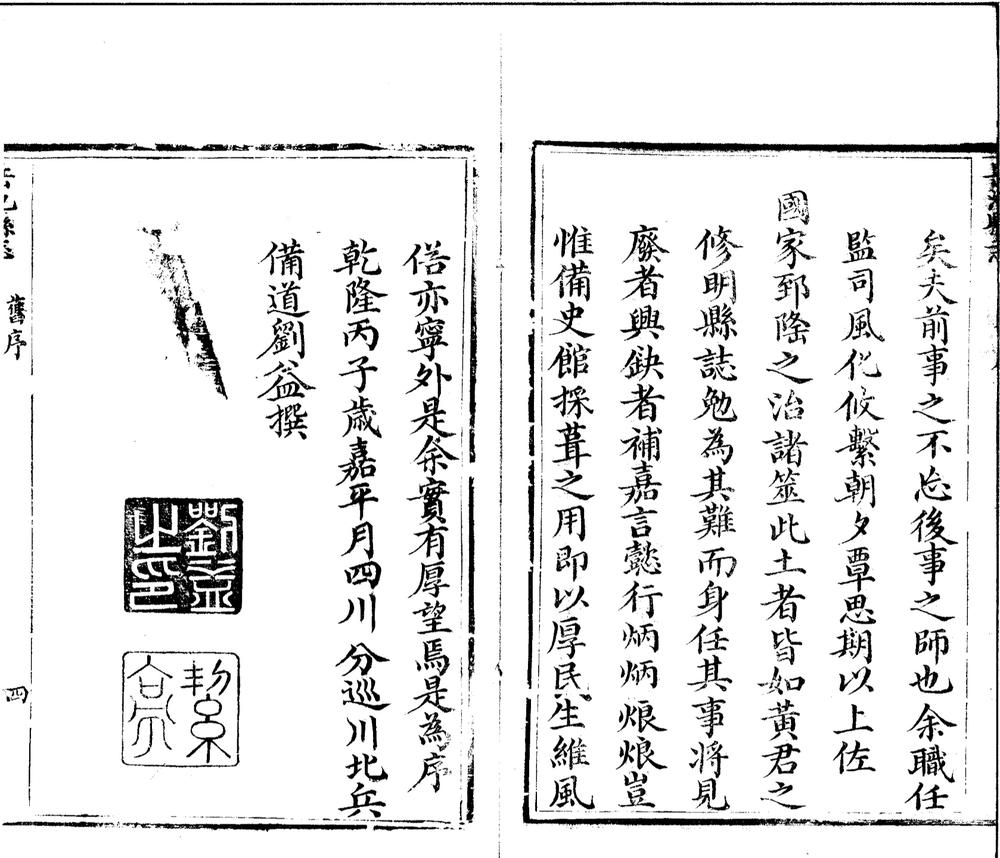 矣夫前事之不忘後事之師也余職任
監司風化攸繫朝夕覃思期以上佐
國家郅隆之治諸筮此土者皆如黃君之
修明縣誌勉為其難而身任其事將見
廢者興缺者補嘉言懿行炳炳烺烺豈
惟備史館採葺之用即以厚民生維風
俗亦寧外是余實有厚望焉是為序
乾隆丙子歲嘉平月四川分巡川北兵
備道劉益撰
劉益之印
舊序
四